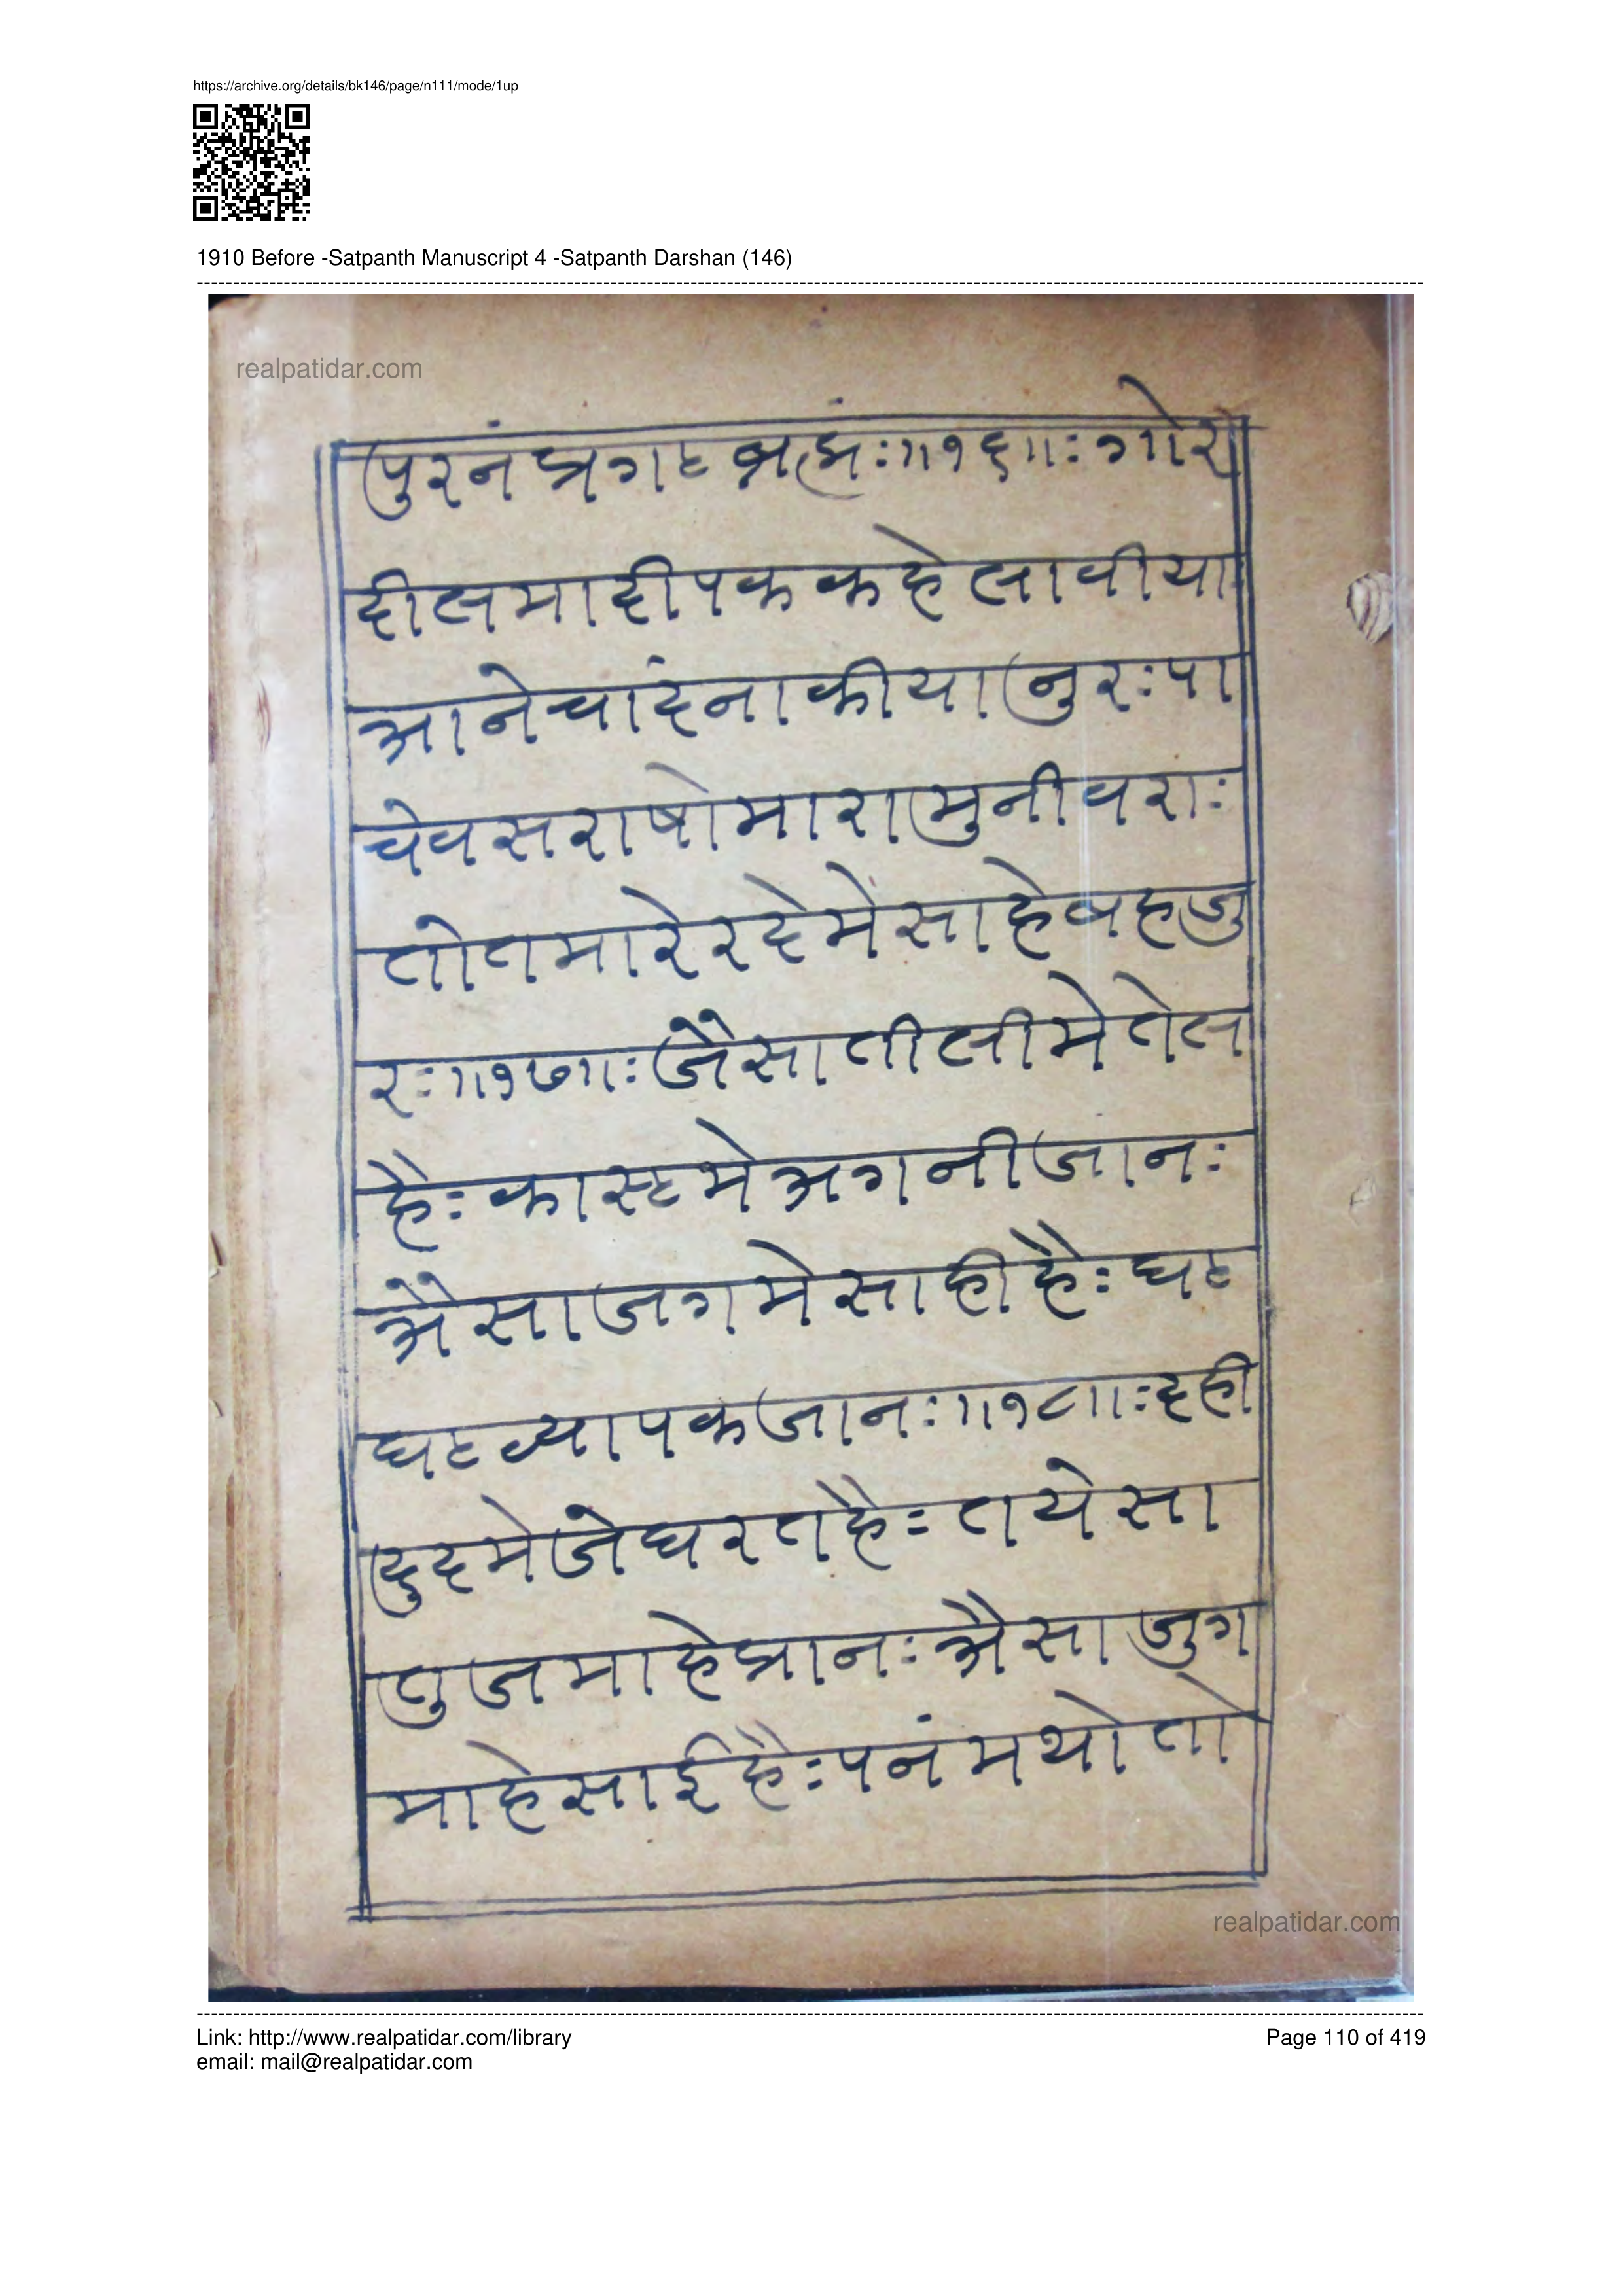 https://archive.org/details/bk146/page/n111/mode/1up
1910 Before -Satpanth Manuscript 4 -Satpanth Darshan (146)
realpatidar.com
पुरनं प्रगट ब्रह्मंः॥१६॥ः गोर
दीलमा दीपक कहे लावीया
आने चांदना कीया नुरः पा
चे वस राषो मारा मुनीवराः
तो तमारे रदेमें साहेब हजु
रः॥१७॥ः जैसा तीलीमे तेल
हैः कास्टमे अगनी जानः
अैसा जगमे साही हैः घट
घट व्यापक जानः॥१८॥ः दही
दुदमे जे घरत हैः तायेसा
तुज माहे प्रानः अैसा जुग
माहे साई हैः पनं मथो तो
realpatidar.com
Link: http://www.realpatidar.com/library
Page 110 of 419
email: mail@realpatidar.com